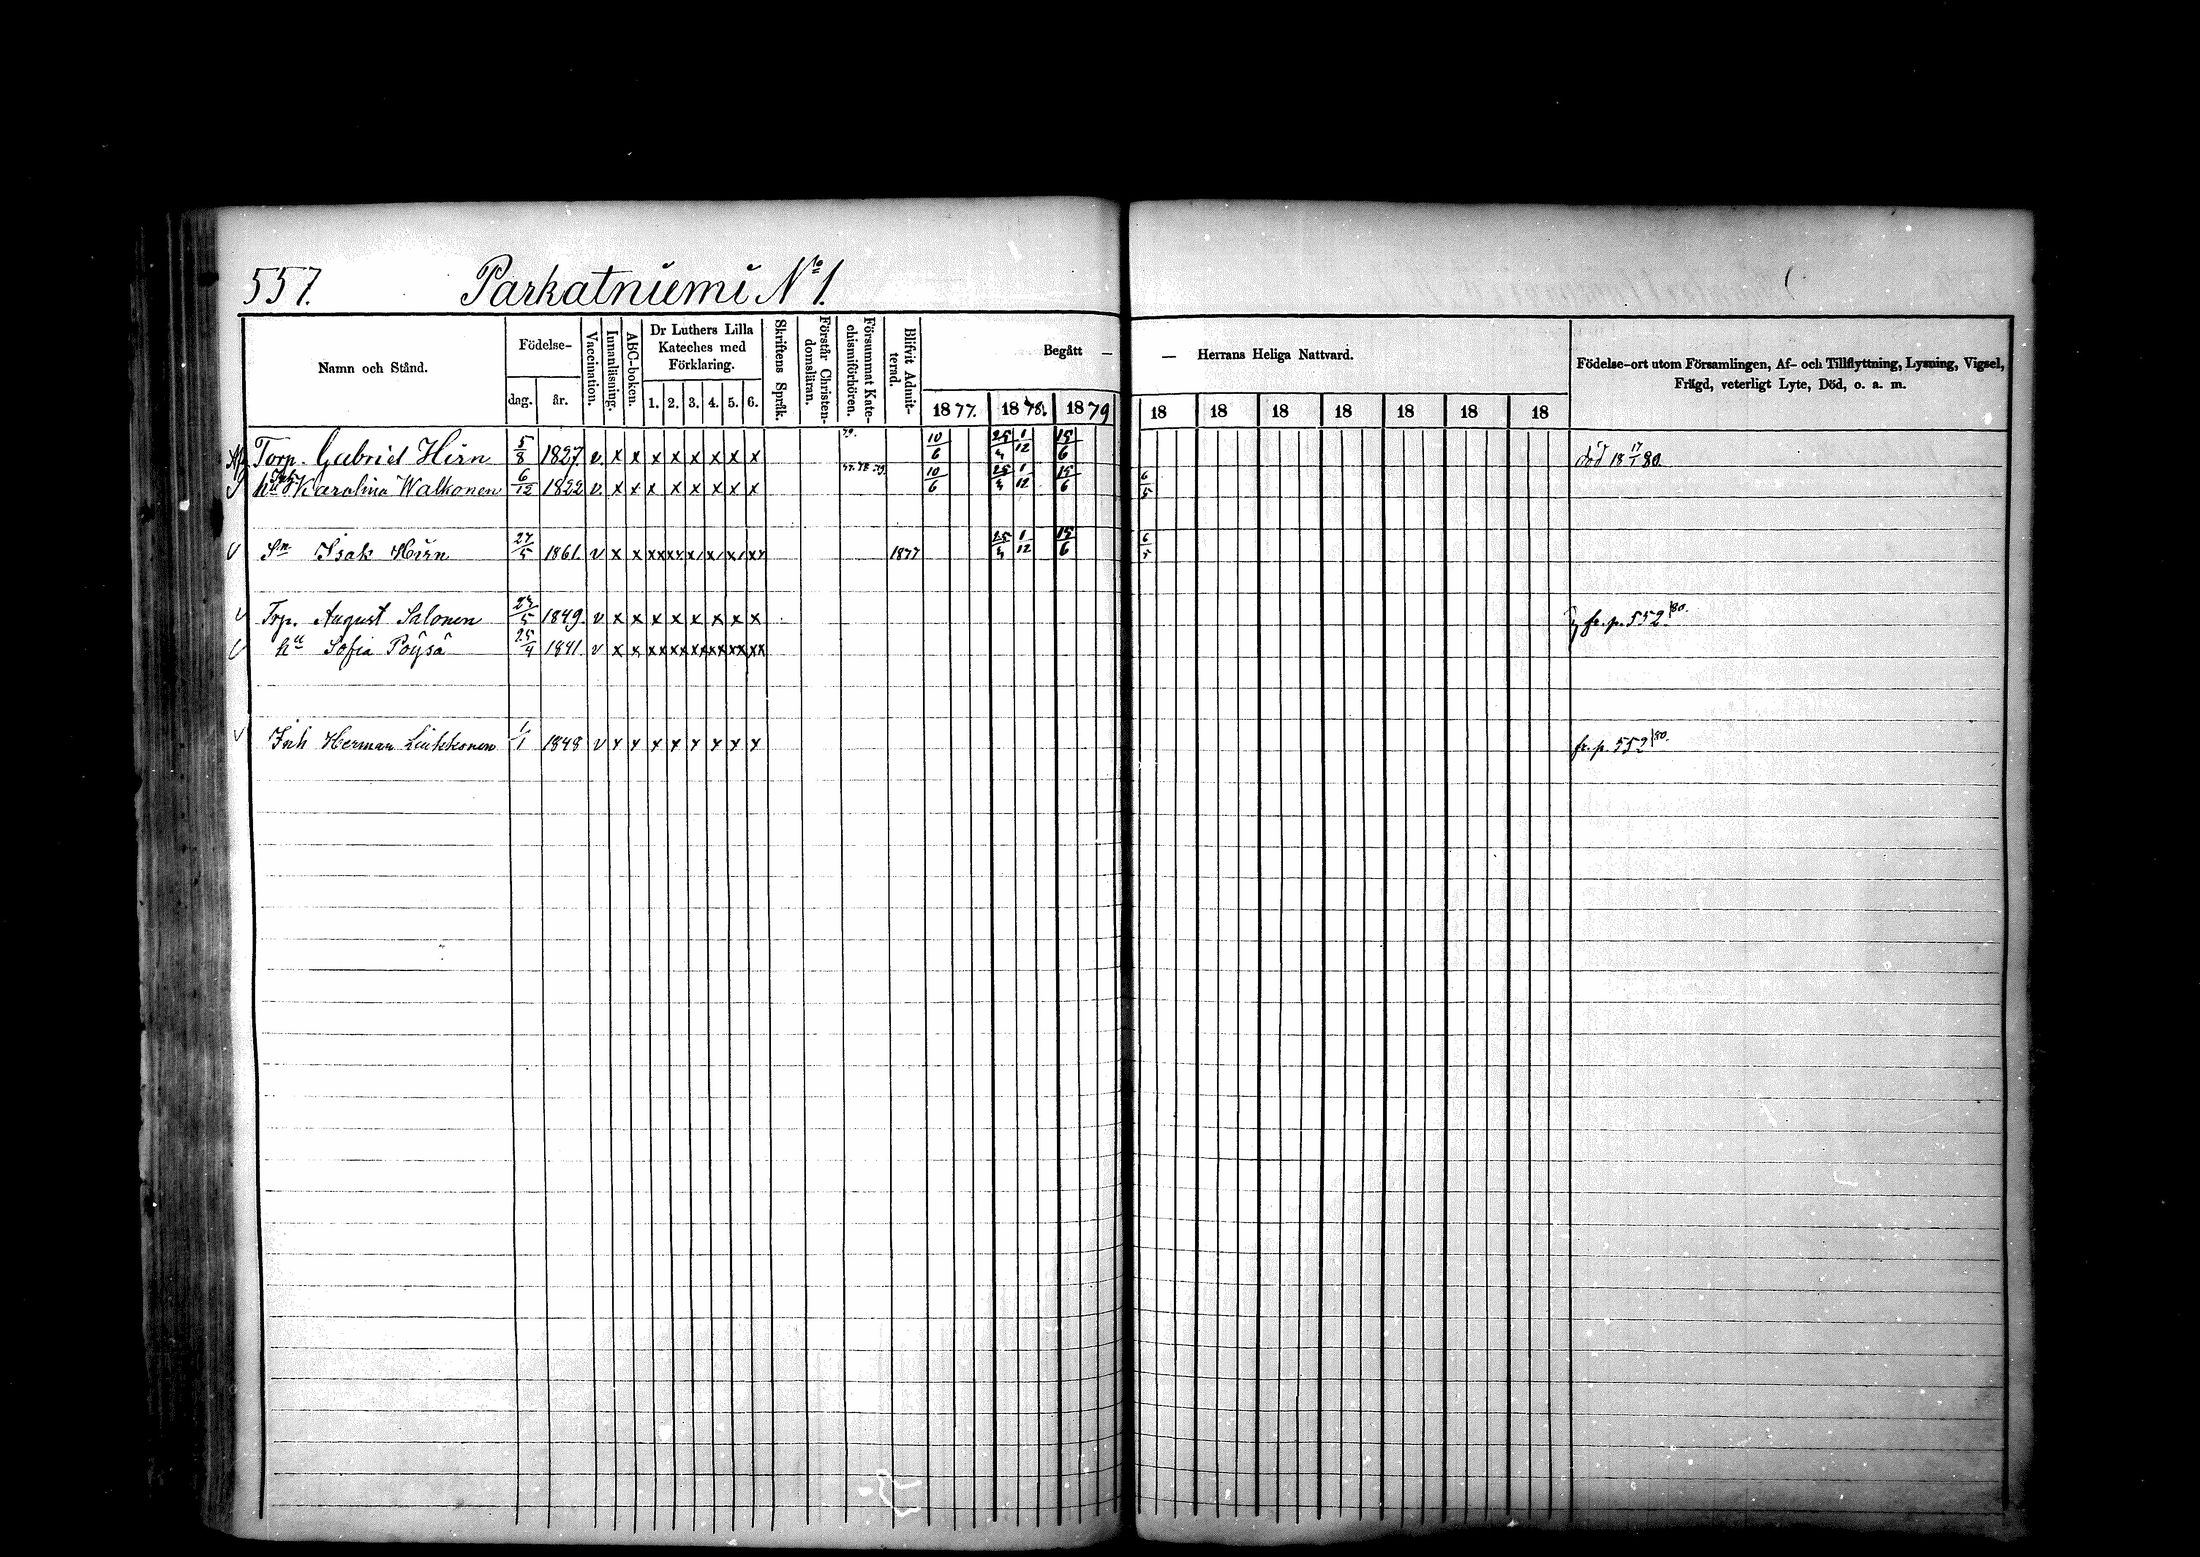 557. Parkatniemi No 1.
Namn och Stånd.
Födelse-
dag. år.
Vaccination.
Innanläsning.
ABC-boken.
Dr Luthers Lilla
Kateches med
Förklaring.
1. 2. 3. 4. 5. 6.
Skriftens Språk.
Förstår Christen-
domsläran.
Försummat Kate-
chismiförhören.
Blifvit Admit-
terad.
Begått — — Herrans Heliga Nattvard.
1877. 1878. 1879 18 18 18 18 18 18 18
Födelse-ort utom Församlingen, Af- och Tillflyttning, Lysning, Vigsel,
Frägd, veterligt Lyte, Död, o. a. m.
Torp. Gabriel Hirn 5/8 1827 v. x x x x x x x x 79. 10/6 1/12 15/6 död 18 17/1 80.
hu Karolina Walkonen 6/12 1822 v. x x x x x x x x 10/6 1/12 15/6 6/5
Sn Isak Hirn 27/5 1861. v x x 1877 1/12 15/6 6/5
Trp. August Salonen 5 1849. v x x x x x x x x fr. p. 552 /80.
hu Sofia Pöysä 25/4 1841 v x x xx xx xx xx xx xx
Inh Herman Liukkonen 1/1 1848 v x x x x x x x x fr. p. 552 /80.